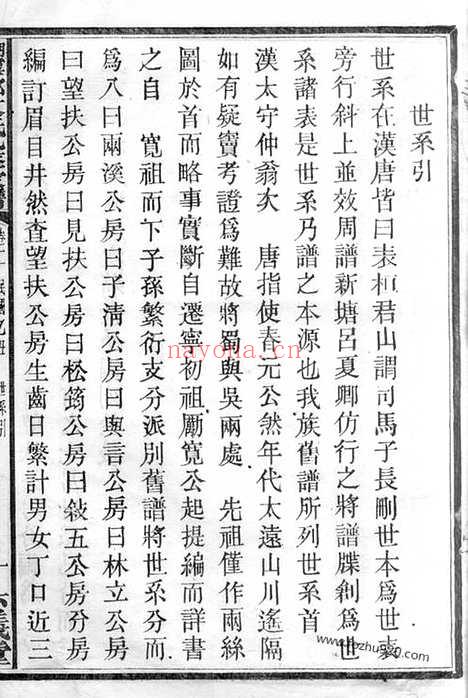 世系引
世系在漢唐皆曰表桓君山謂司馬子長刪世本爲世表
旁行斜上並效周譜新塘呂夏卿仿行之將譜牒創爲世
系諸表是世系乃譜之本源也我族舊譜所列世系首
漢太守仲翁次 唐指使春元公然年代太遠山川遙隔
如有疑竇考證爲難故將蜀與吳兩處 先祖僅作兩絲
圖於首而略事實斷自遷寧初祖勵寬公起提編而詳書
之自 寬祖而下子孫繁衍支分派別舊譜將世系分而
爲八曰兩溪公房曰子清公房曰與言公房曰林立公房
曰望扶公房曰見扶公房曰松筠公房曰敍五公房分房
編訂眉目井然查望扶公房生齒日繁計男女丁口近三
世系引
一
nayona.cn